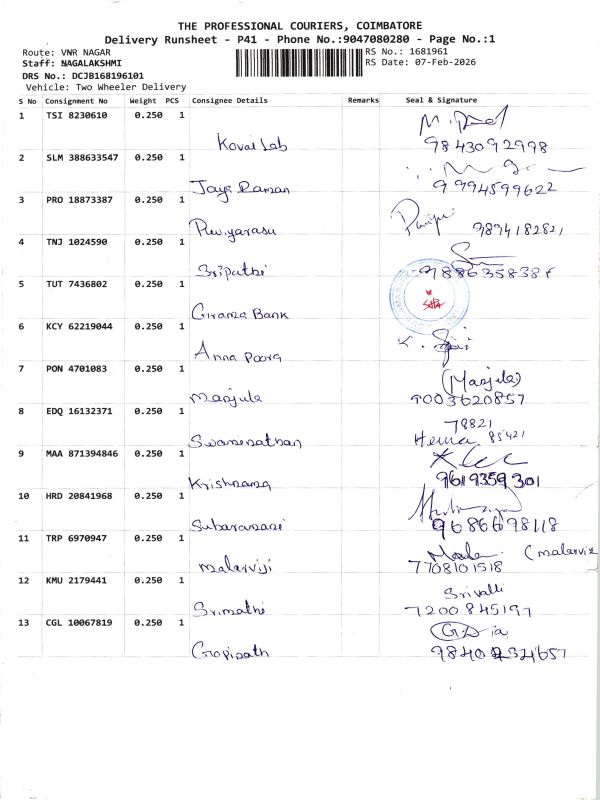 THE PROFESSIONAL COURIERS, COIMBATORE
Delivery Runsheet - P41 - Phone No.:9047080280 - Page No.:1
Route: VNR NAGAR RS No.: 1681961
Staff: NAGALAKSHMI RS Date: 07-Feb-2026
DRS No.: DCJB168196101
Vehicle: Two Wheeler Delivery
S No Consignment No Weight PCS Consignee Details Remarks Seal & Signature
1 TSI 8230610 0.250 1
Kovai Lab 9843092998
2 SLM 388633547 0.250 1
Jaya Raman 9994599622
3 PRO 18873387 0.250 1
9894182821
4 TNJ 1024590 0.250 1
Sripathi
5 TUT 7436802 0.250 1
Grama Bank
6 KCY 62219044 0.250 1
Anna Poorg
7 PON 4701083 0.250 1 (Manjula)
Manjula 9003620857
8 EDQ 16132371 0.250 1 78821
Swaminathan Hema 85421
9 MAA 871394846 0.250 1
Krishnama 9619359301
10 HRD 20841968 0.250 1
9686698118
11 TRP 6970947 0.250 1
malarviji 7708101518
12 KMU 2179441 0.250 1 Srivalli
Srimathi 7200845197
13 CGL 10067819 0.250 1
Gopinath